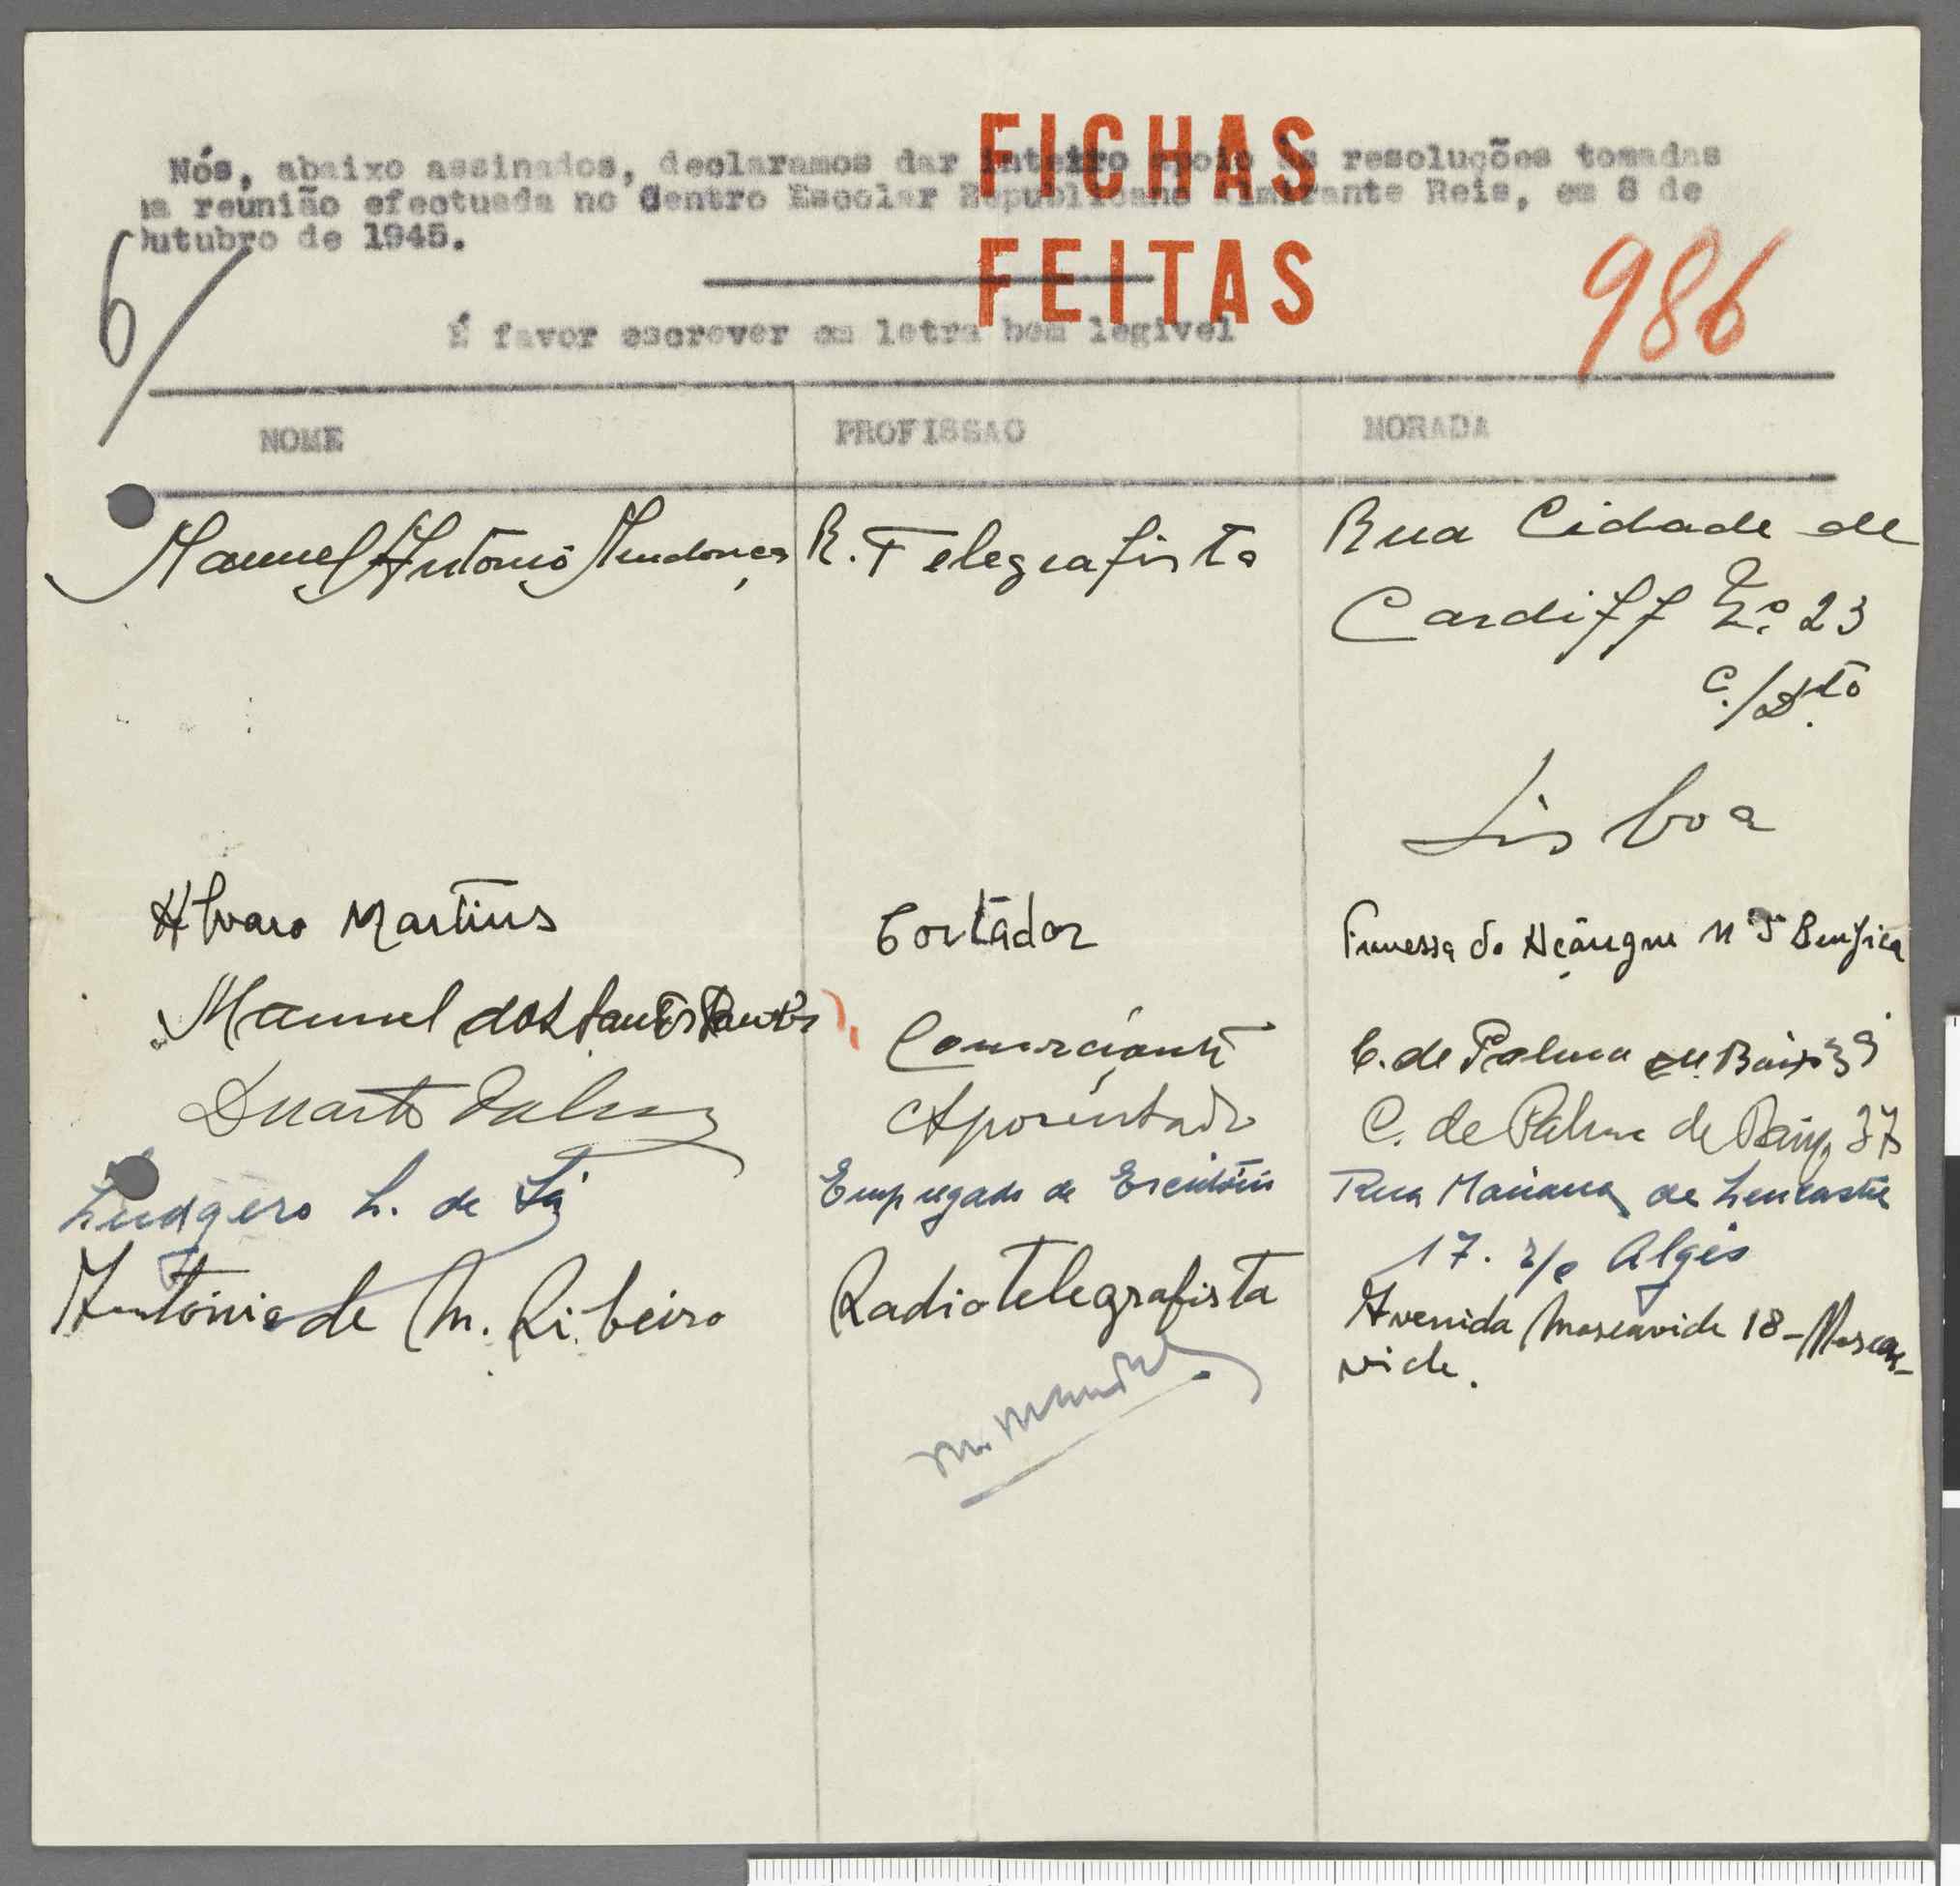 Nós, abaixo assinados, declaramos dar inteiro apoio às resoluções tomadas
na reunião efectuada no Centro Escolar Republicano Almirante Reis, em 8 de
Outubro de 1945.
FICHAS
FEITAS
6/
986
É favor escrever em letra bem legivel
NOME PROFISSAO MORADA
Manuel António Mendonça R. Telegrafista Rua Cidade de
Cardiff Nº 23
c./Dto
Lisboa
Alvaro Martins Cortador Travessa do Açougue Nº 5 Benfica
Manuel dos Santos Comerciante C. de Palma de Baixo 39
Duarte Aposentado C. de Palma de Baixo 37
Ludgero L. de Sá Empregado de Escritório Rua Mariana de Lencastre
17. r/c Algés
António de M. Ribeiro Radiotelegrafista Avenida Moscavide 18-Mosca-
vide.